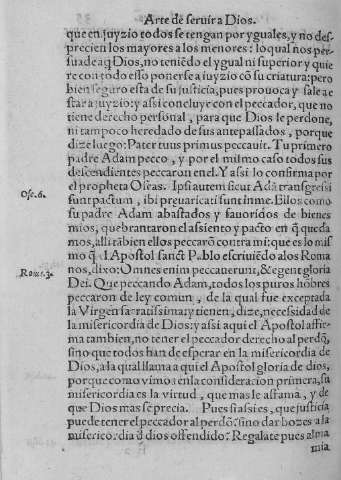 Arte de seruir a Dios.
que en juyzio todos se tengan por yguales, y no des-
precien los mayores a los menores: lo qual nos per-
suade aq̃ Dios, no teniẽdo el ygual ni superior y quie
re con todo esso ponerse a juyzio cõ su criatura: pero
bien seguro esta de su justicia, pues prouoca y sale a e
star a juyzio: y assi concluye con el peccador, que no
tiene derecho personal, para que Dios le perdone,
ni tampoco heredado de sus antepassados, porque
dize luego: Pater tuus primus peccauit. Tu primero
padre Adam pecco, y por el mismo caso todos sus
descendientes peccaron en el. Y assi lo confirma por
el propheta Oseas. Ipsi autem sicut Adã transgressi
Ose. 6.
sunt pactum, ibi preuaricati sunt in me. Ellos como
su padre Adam abastados y fauoridos de bienes
mios, quebrantaron el assiento y pacto en q̃ queda
mos, alli tãbien ellos peccarõ contra mi: que es lo mis
mo q̃ el Apostol sanct Pablo escriuiẽdo a los Roma
nos, dixo: Omnes enim peccauerunt, & egent gloria
Rom. 3.
Dei. Que peccando Adam, todos los puros hõbres
peccaron de ley comun, de la qual fue exceptada
la Virgen sacratissima: y tienen, dize, necessidad de
la misericordia de Dios: y assi aqui el Apostol affir-
ma tambien, no tener el peccador derecho al perdõ,
sino que todos han de esperar en la misericordia de
Dios, a la qual llama aqui el Apostol gloria de dios,
porque como vimos en la consideracion primera, su
misericordia es la virtud, que mas le afama, y de
que Dios mas se precia. Pues si assi es, que justicia
puede tener el peccador al perdõ: sino dar bozes a la
misericordia d̃ dios offendido? Regalate pues alma
mia